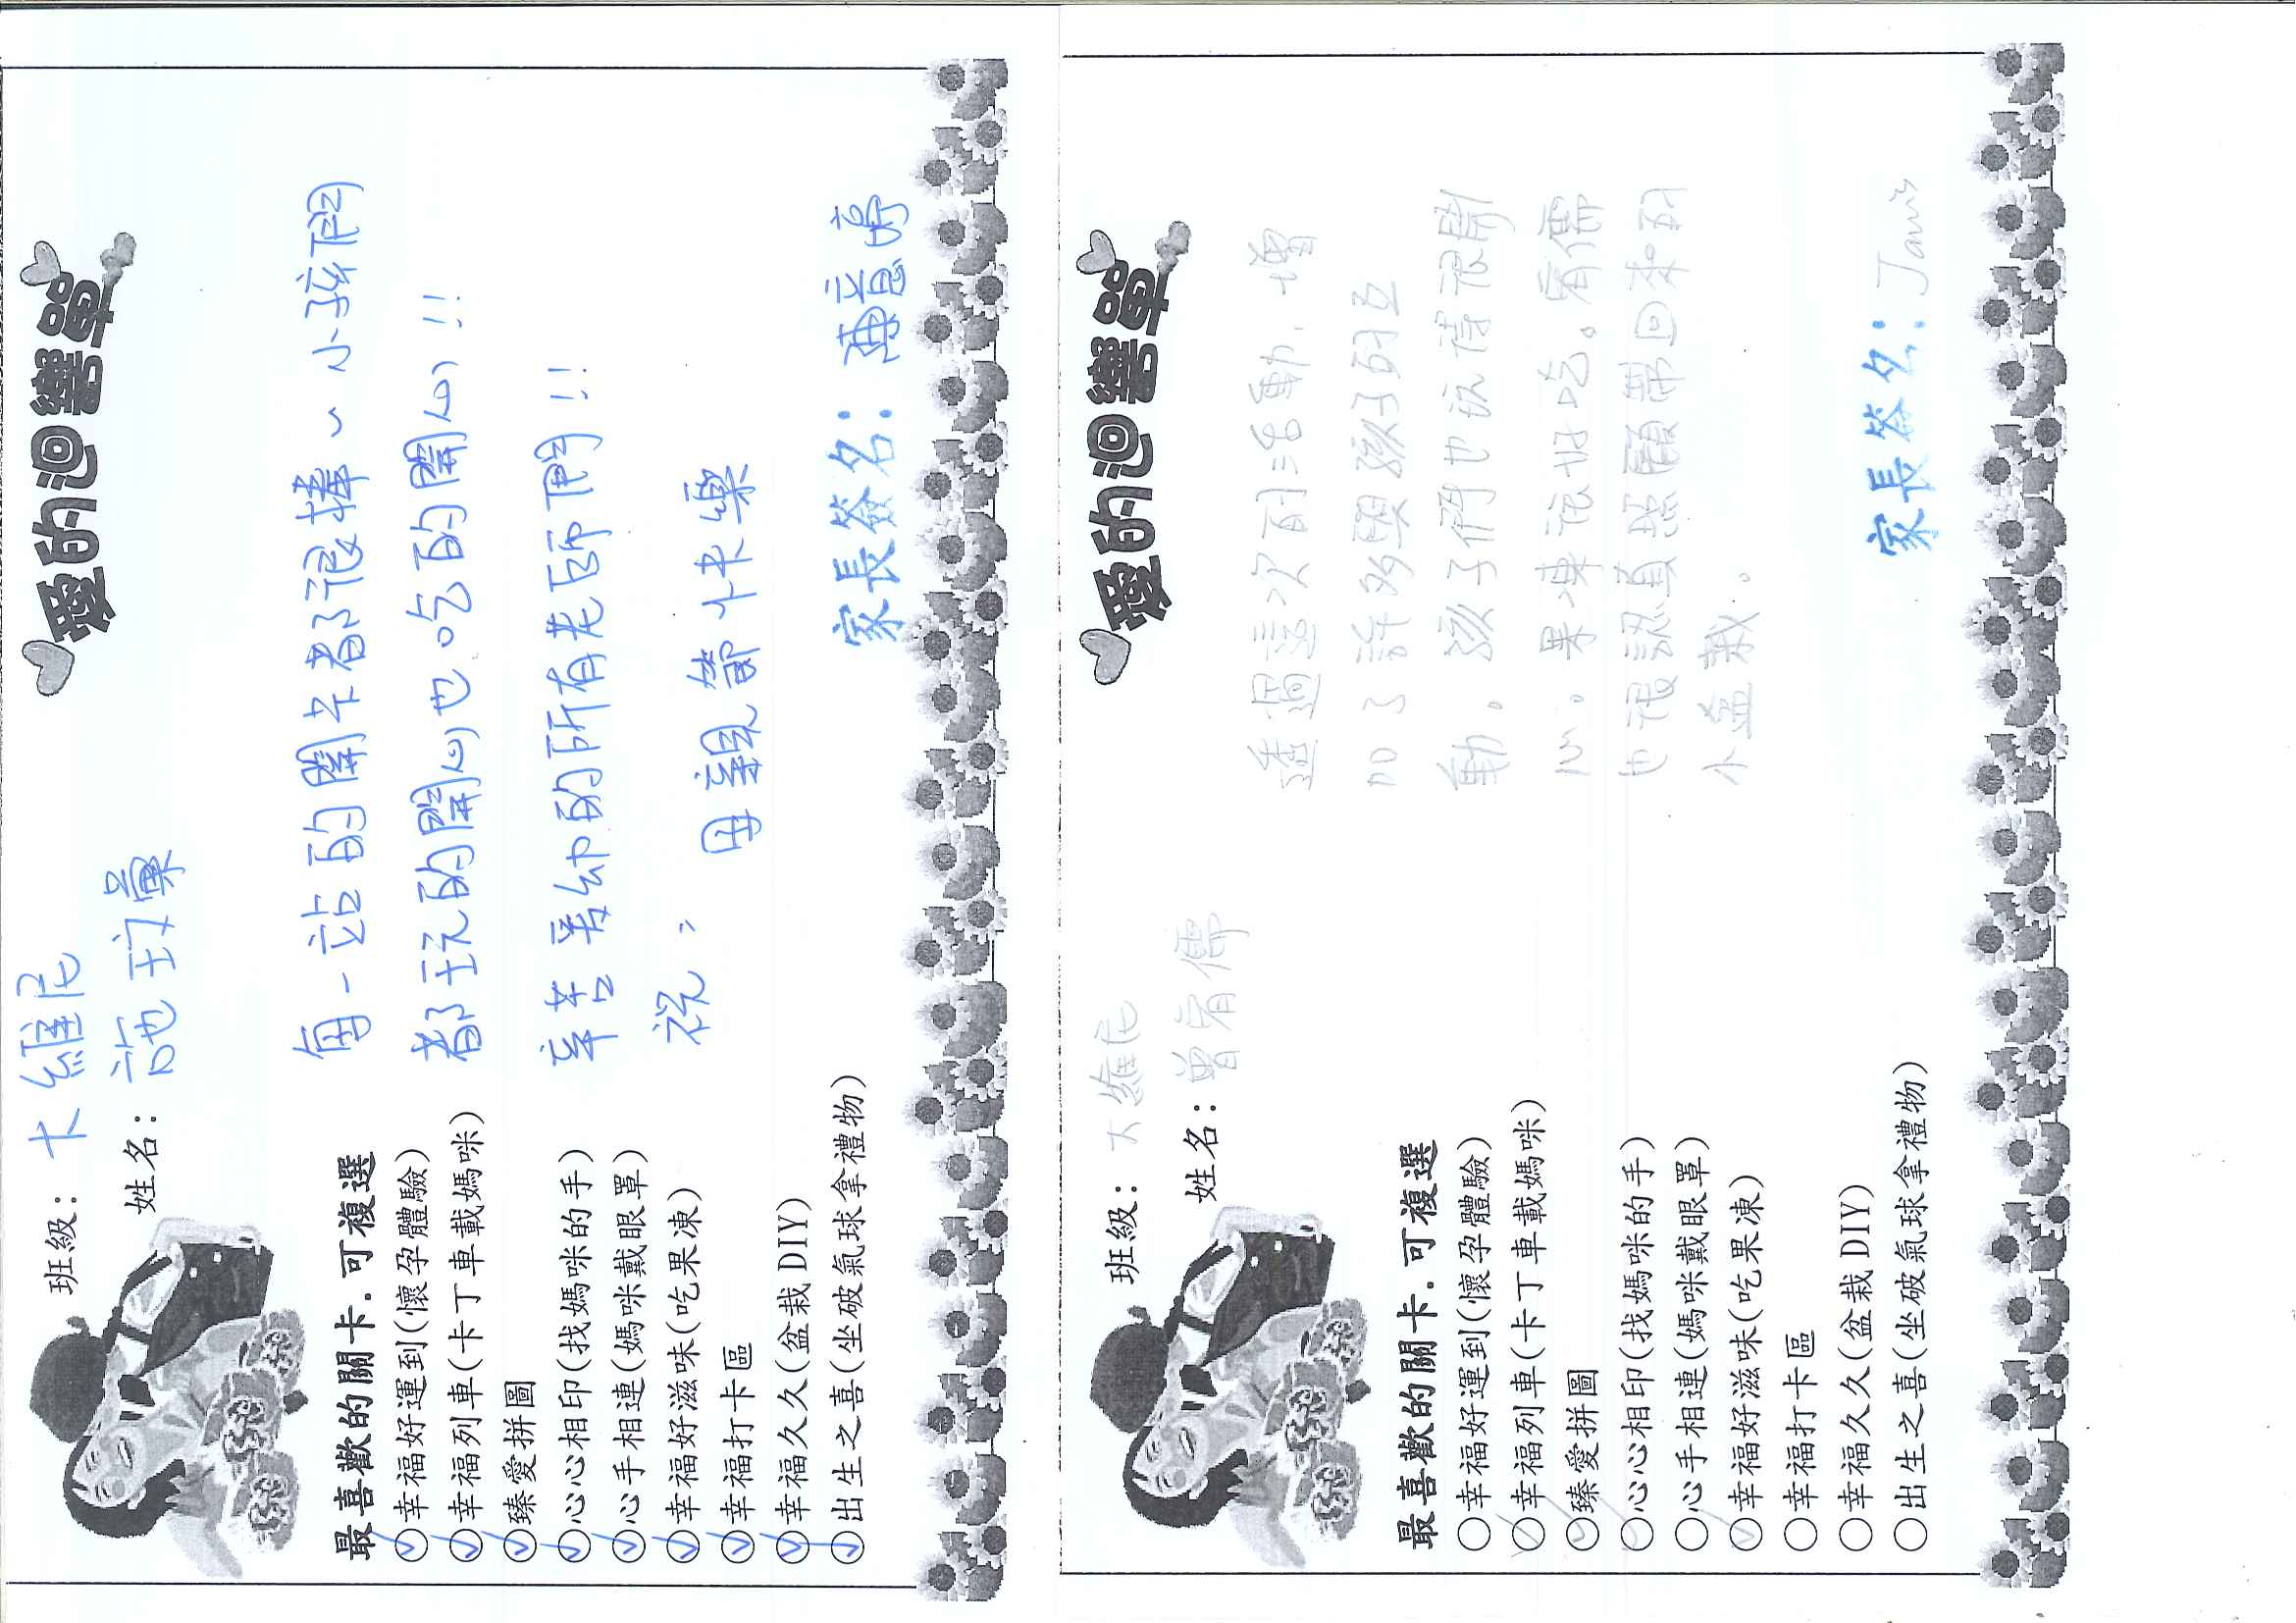 愛的迴響單
班級：卡維尼
姓名：施玟彙
最喜歡的關卡.可複選
幸福好運到(懷孕體驗)
幸福列車(卡丁車載媽咪)
臻愛拼圖
心心相印(找媽咪的手)
心手相連(媽咪戴眼罩)
幸福好滋味(吃果凍)
幸福打卡區
幸福久久(盆栽DIY)
出生之喜(坐破氣球拿禮物)
每一站的關卡都很棒~小孩們
都玩的開心也吃的開心!!
辛苦愛幼的所有老師們!!
祝，
母親節快樂
家長簽名：意婷
愛的迴響單
班級：大維尼
姓名：曾宥儒
最喜歡的關卡.可複選
幸福好運到(懷孕體驗)
幸福列車(卡丁車載媽咪)
臻愛拼圖
心心相印(找媽咪的手)
心手相連(媽咪戴眼罩)
幸福好滋味(吃果凍)
幸福打卡區
幸福久久(盆栽DIY)
出生之喜(坐破氣球拿禮物)
透過這次的活動，增
加了許多與孩子的互
動。孩子們也玩得很開
心。果凍很好吃。宥儒
也很認真照顧帶回來的
小盆栽。
家長簽名：Javis